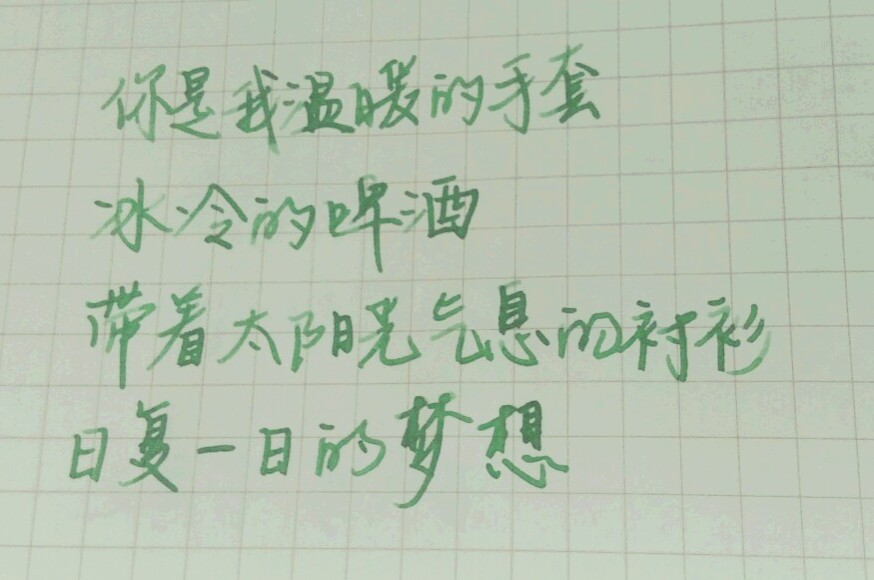 你是我温暖的手套
冰冷的啤酒
带着太阳光气息的衬衫
日复一日的梦想